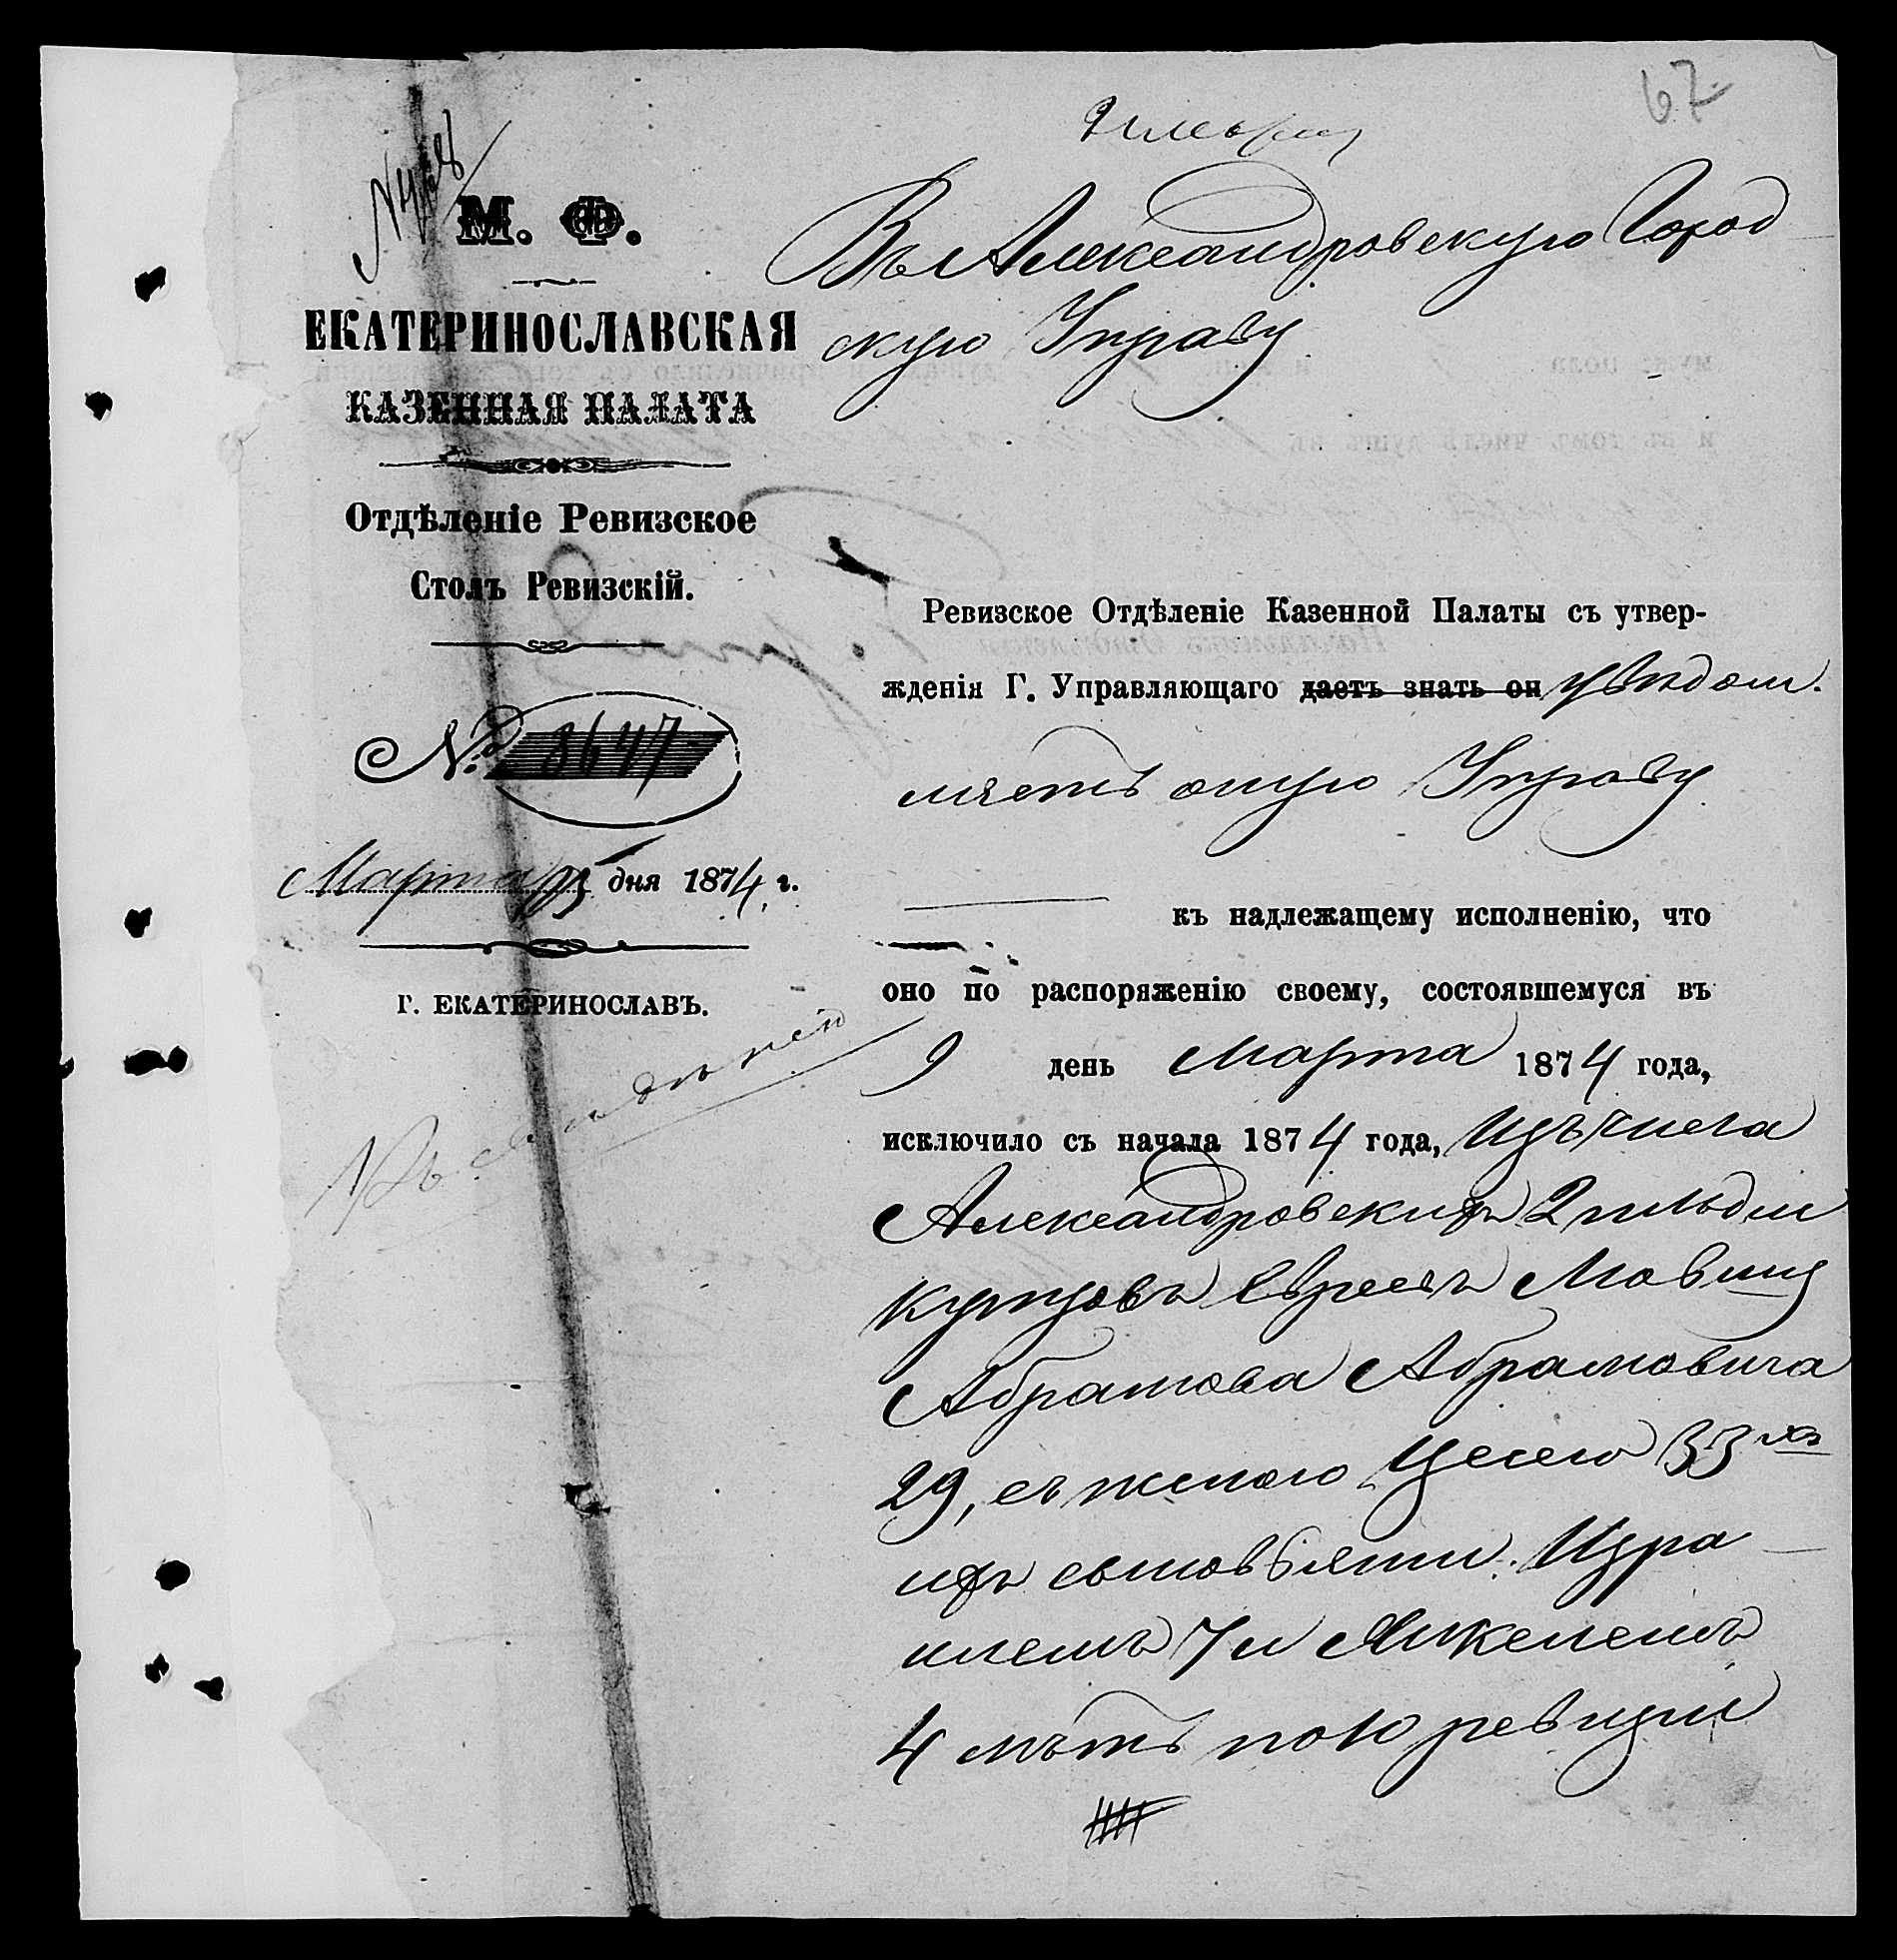 67
М. Ф.
ЕКАТЕРИНОСЛАВСКАЯ
КАЗЕННАЯ ПАЛАТА
Отдѣленіе Ревизское
Столъ Ревизскій.
№ 3647
Марта 13 дня 1874 г.
Г. ЕКАТЕРИНОСЛАВЪ.
Въ Александровскую Город
скую Управу
Ревизское Отдѣленіе Казенной Палаты съ утвер-
жденія Г. Управляющаго даетъ знать он увѣдом.
ляетъ оную Управу
къ надлежащему исполненію, что
оно по распоряженію своему, состоявшемуся въ
9 день Марта 1874 года,
исключило съ начала 1874 года, изъ числа
Александровскихъ 2 гильдіи
купцовъ евреевъ Мовшу
Абрамова Абрамовича
29, съ женою Цесею 33 хъ
ихъ сыновьями: Изра
илемъ 7 и Янкелемъ
4 лѣтъ по 10 ревизіи